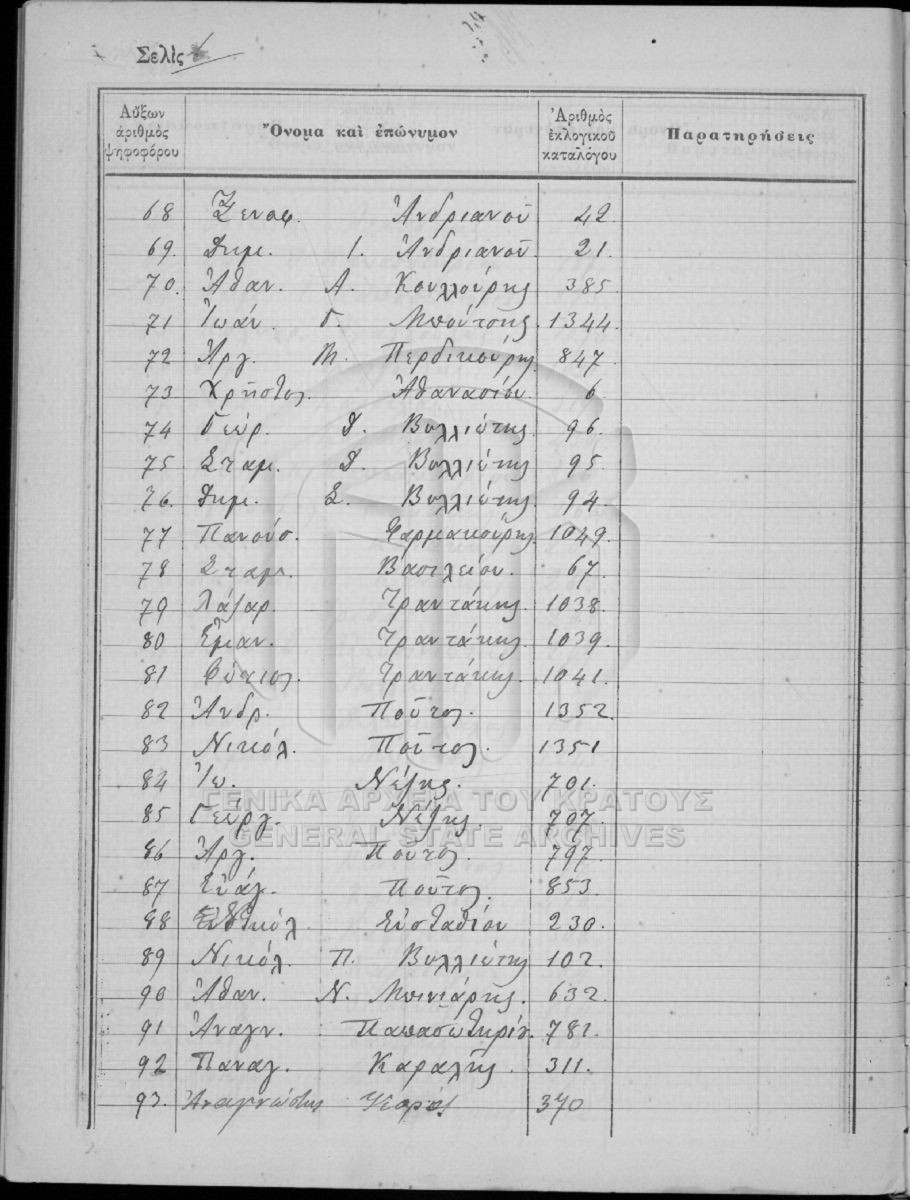 Σελὶς
Αὔξων ἀριθμὸς ψηφοφόρου Ὄνομα καὶ ἐπώνυμον Ἀριθμὸς ἐκλογικοῦ καταλόγου Παρατηρήσεις
68 Ξενοφ. Ἀνδριανοῦ 42
69. Δημ. Ι. Ἀνδριανοῦ 21.
70. Ἀθαν. Α. Κουλλούρης 385
71 Ἰωάν. Γ. Μπούτσης. 1344.
72 Ἀργ. Μ. Περδικούρης 847.
73 Χρῆστος. Ἀθανασίου 6
74 Γεώρ. Δ. Βυλλιώτης. 96.
75 Σταμ. Δ. Βυλλιώτης 95.
76. Δημ. Σ. Βυλλιώτης. 94.
77 Πανούσ. Φαρμακούρης. 1049.
78 Σταμ. Βασιλείου. 67.
79 Λάζαρ. Τραντάκης. 1038.
80 Ἐμαν. Τραντάκης. 1039.
81 Φώτιος. Τραντάκης. 1041.
82 Ἀνδρ. Ποῦτος. 1352.
83 Νικόλ. Ποῦτος. 1351
84 Ἰω. Νέζης. 701.
85 Γεώργ. Νέζης. 707.
ΓΕΝΙΚΑ ΑΡΧΕΙΑ ΤΟΥ ΚΡΑΤΟΥΣ
GENERAL STATE ARCHIVES
86 Ἀργ. Ποῦτος. 797.
87 Εὐάγ. Ποῦτος. 853.
88 Εὐσταθίου 230.
89 Νικόλ. Π. Βυλλιώτης 102.
90 Ἀθαν. Ν. Μπινιάρης. 632.
91 Ἀναγν. Παπασωτηρίου. 781.
92 Παναγ. Καραλῆς. 311.
93. Ἀναγνώστης 370